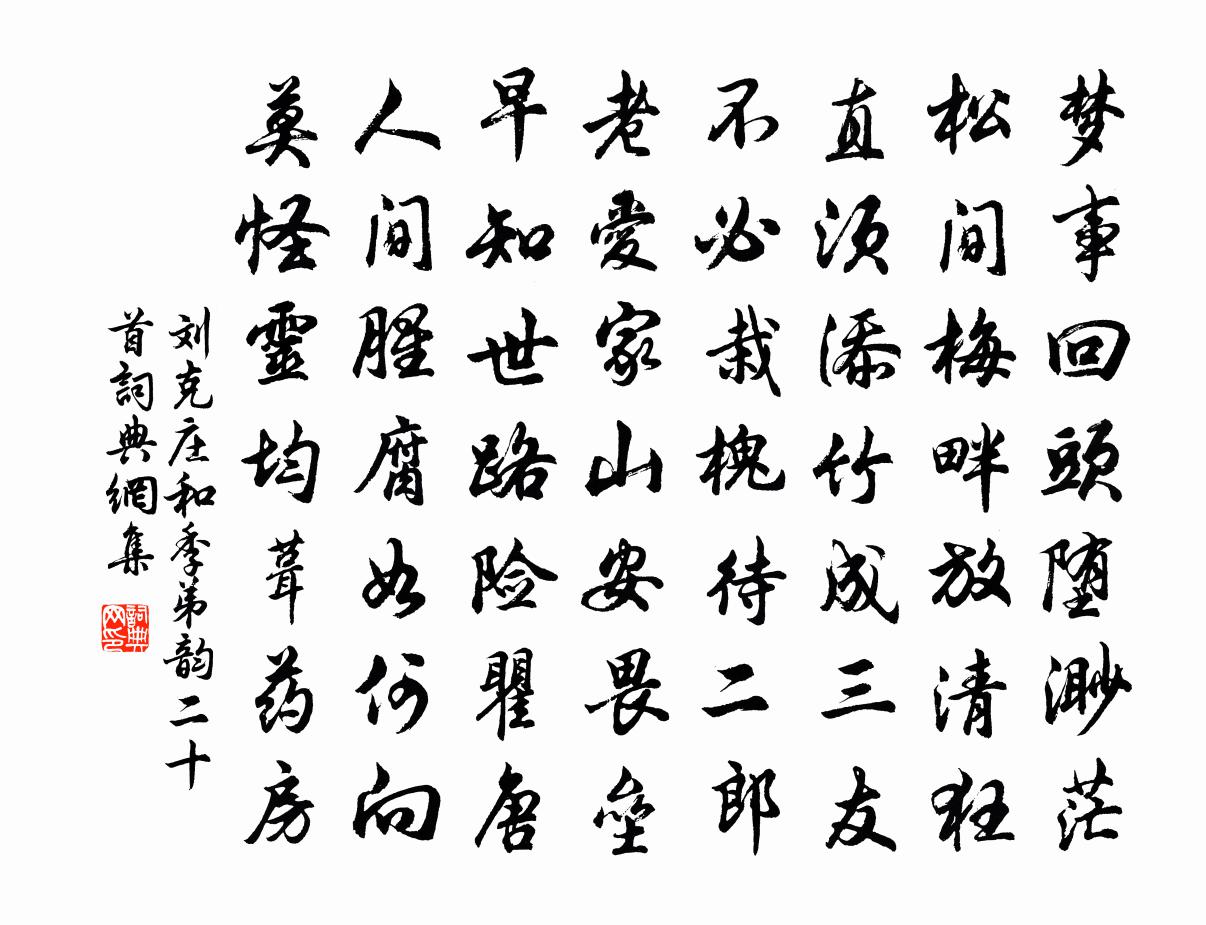 梦事回頭堕渺茫
松间梅畔放清狂
直须添竹成三友
不必栽槐待二郎
老愛家山安畏壘
早知世路险瞿唐
人间腥腐如何向
莫怪靈均葺药房
刘克庄和季弟韵二十
首詞典網集
詞典網印